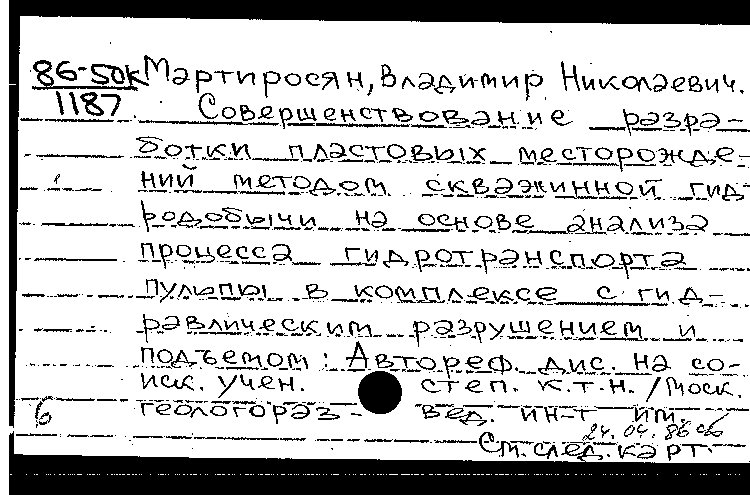 86-50К Мартиросян, Владимир Николаевич.
1187 Совершенствование разра-
ботки пластовых месторожде-
ний методом скважинной гид-
родобычи на основе анализа
процесса гидротранспорта
пульпы в комплексе с гид-
равлическим разрушением и
подъемом: Автореф. дис. на со-
иск. учен. степ. к.т.н. / Моск.
6 геологораз- вед. ин-т им.
24.04.86
См. след. карт.